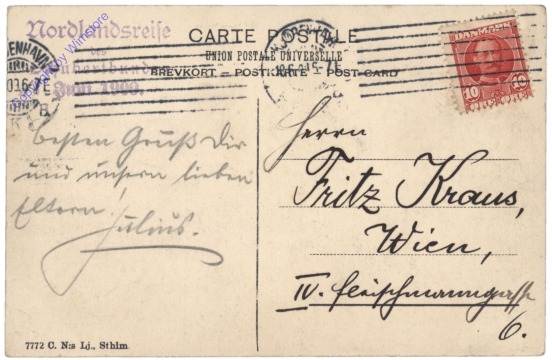 Nordlandsreise
des
Schubertbund
Juni 1909.
CARTE POSTALE
UNION POSTALE UNIVERSELLE
BREVKORT - POSTKARTE - POST-CARD
DANMARK
10 10
besten Gruß Dir
und unsern lieben
Eltern!
Julius.
Herrn
Fritz Kraus,
Wien,
IV. Fleischmanngasse
6.
7772 C. N:s Lj., Sthlm.